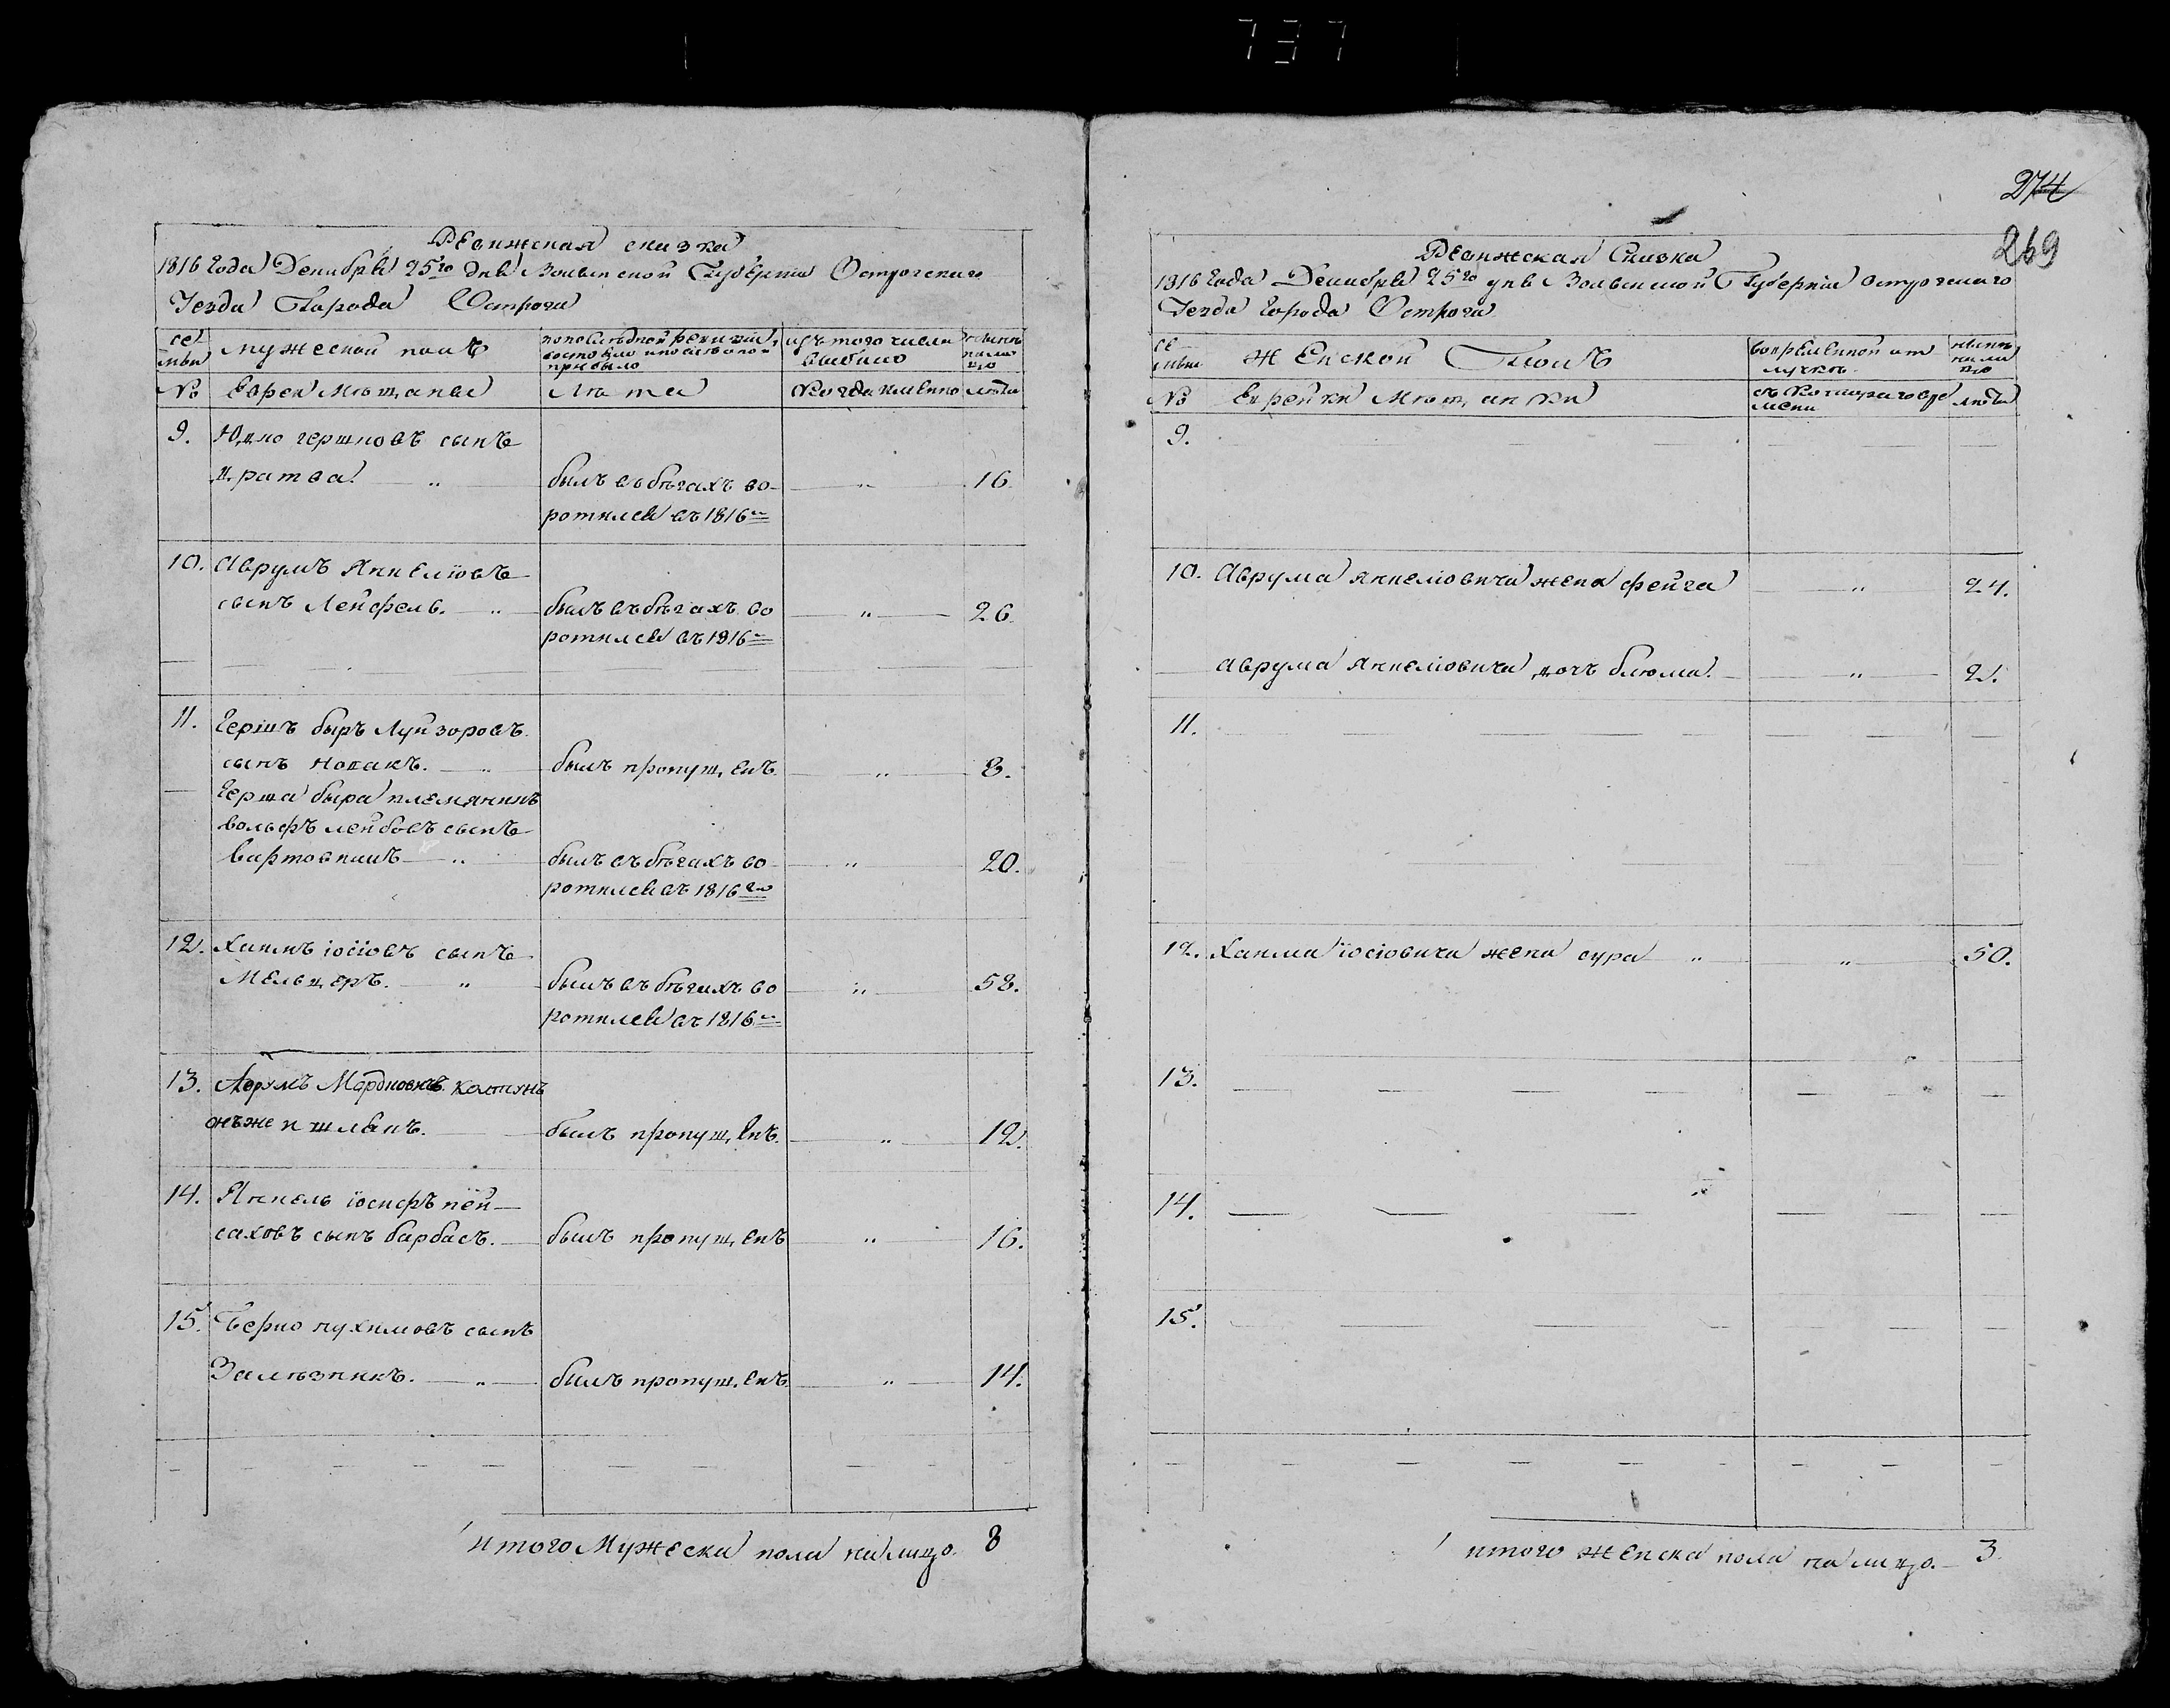 737
Ревижская сказка
1816 года Декабря 25го дня Волынской Губернiи Острогскаго
Уезда Города Острога
се мьи
мужеской полъ
по последной ревизiи состояло и после оной прибыло
изъ того числа выбыло
ныне на лицо
№ Евреи Мѣщаны Лѣта Когда именно лѣта
9. Юдко гершковъ сынъ
дратва. " былъ въ бѣгахъ во- " 16.
ротился въ 1816
10. Аврумъ Янкелiовъ
сынъ Лейфель. " былъ въ бѣгахъ во " 26.
ротился въ 1816
11. Гершъ быръ Луйзоровъ
сынъ Новакъ. " былъ пропущенъ. " 8.
Герша быра племянникъ
вольфъ лейбовъ сынъ
Вартовникъ " былъ въ бѣгахъ во " 20.
ротился въ 1816 го
12. Хаимъ iосiовъ сынъ
Мельцеръ. " былъ въ бѣгахъ во " 58.
ротился въ 1816
13. Аврумъ Мордковичъ Колтунъ
онъ же и шланъ. былъ пропущенъ. " 12.
14. Янкель iосифъ пей-
саховъ сынъ барбасъ. былъ пропущенъ " 16.
15. Берко нухимовъ сынъ
Залѣзникъ. " былъ пропущенъ. " 14.
итого Мужеска пола на лицо. 8
274
269
Ревижская Сказка
1816 Года Декабря 25го дня Волынской Губернiи Острогскаго
Уезда города Острога
се мьи
Женской Полъ
во временной отлучкѣ
ныне на лицо
№ Еврейки Мѣщанки съ Котораго времени лѣта
9.
10. Аврума янкелiовича жена фейга " 24.
Аврума Янкелiовича дочь блюма. " 2.
11.
12. Хаима iосiовича жена сура " " 50.
13.
14.
15.
итого женска пола на лицо. 3.